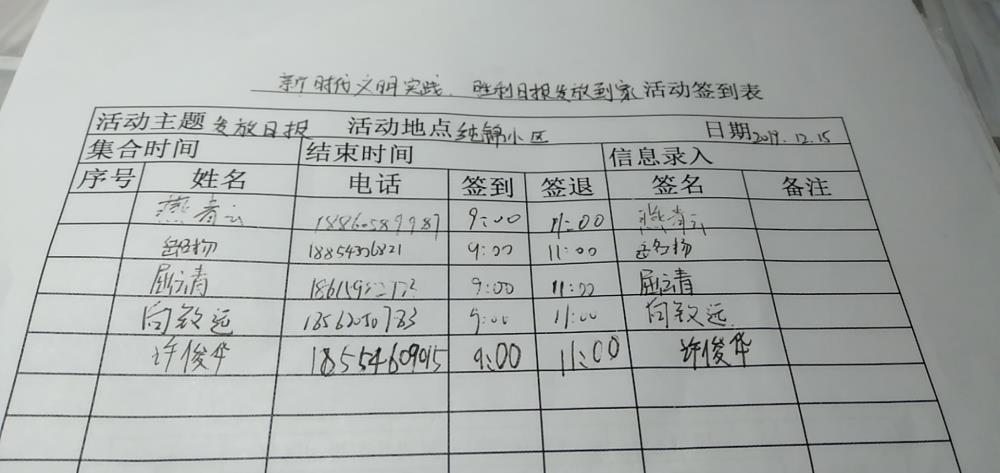 新时代文明实践、胜利日报发放到家活动签到表
活动主题 发放日报 活动地点 纯锦小区 日期 2019.12.15
集合时间 结束时间 信息录入
序号 姓名 电话 签到 签退 签名 备注
燕青云 18860589987 9:00 11:00 燕青云
18854306821 9:00 11:00
屈云青 9:00 11:00 屈云青
向致远 9:00 11:00 向致远
许俊华 18554609015 9:00 11:00 许俊华